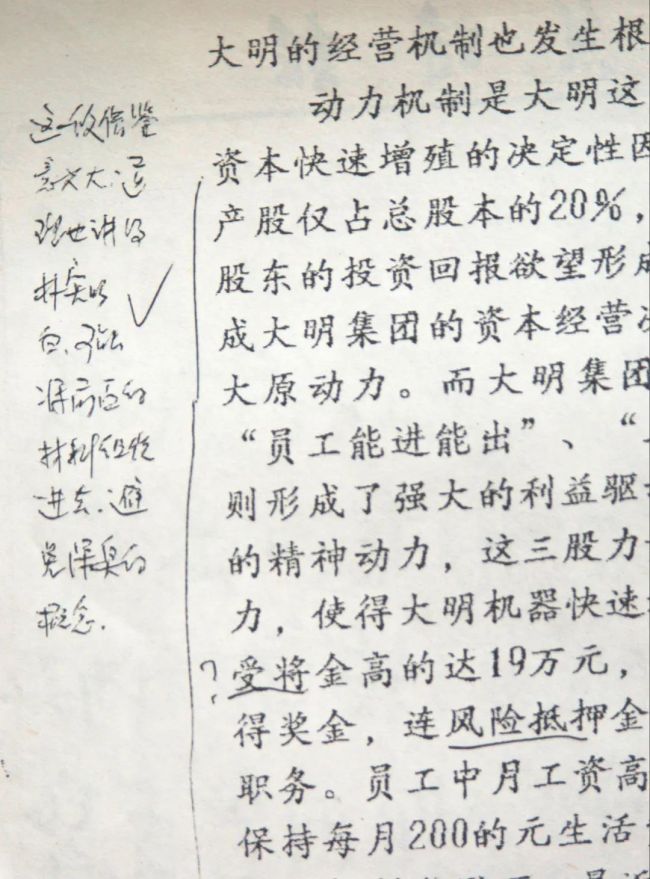 大明的经营机制也发生根
动力机制是大明这
资本快速增殖的决定性因
产股仅占总股本的20%，
股东的投资回报欲望形成
成大明集团的资本经营决
大原动力。而大明集团
“员工能进能出”、“
则形成了强大的利益驱
的精神动力，这三股力
力，使得大明机器快速
?受将金高的达19万元，
得奖金，连风险抵押金
职务。员工中月工资高
保持每月200的元生活
这一段借鉴
意义大，道
理也讲得
朴实明
白，可以
将前面的
材料组织
进去，避
免深奥的
概念.